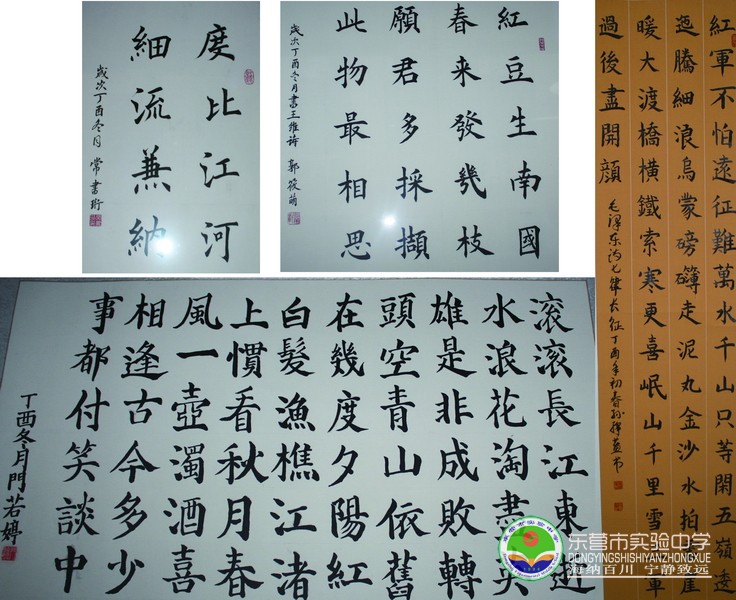 度比江河
細流兼納
歲次丁酉冬月 常書珩
紅豆生南國
春来發幾枝
願君多採擷
此物最相思
歲次丁酉冬月書王維詩 郭筱萌
紅軍不怕遠征難萬水千山只等閑五嶺逶
迤騰細浪烏蒙磅礴走泥丸金沙水拍崖
暖大渡橋橫鐵索寒更喜岷山千里雪軍
過後盡開顔
毛澤东詩七律长征丁酉年初春孫
滾滾長江東逝
水浪花淘盡英
雄是非成敗轉
頭空青山依舊
在幾度夕陽紅
白髮漁樵江渚
上慣看秋月春
風一壺濁酒喜
相逢古今多少
事都付笑談中
丁酉冬月門若婷
东营市实验中学
DONGYINGSHISHIYANZHONGXUE
海纳百川 宁静致远